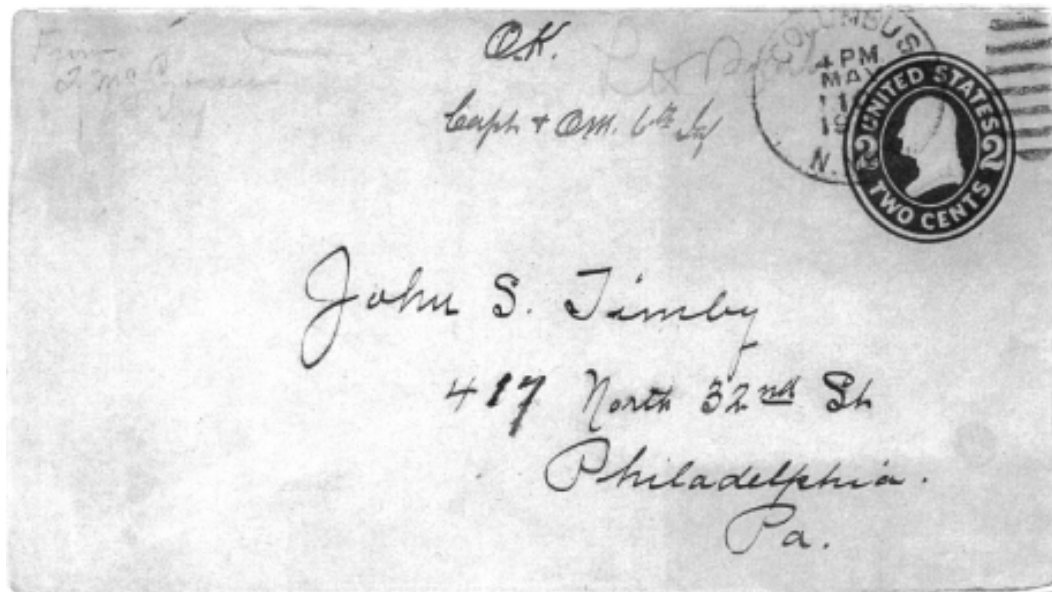 From
O.K.
Capt + QM. 6th Inf
COLUMBUS
4 PM
MAY
11
N.
UNITED STATES
2 2
TWO CENTS
John S. Timby
417 North 32nd St
Philadelphia.
Pa.